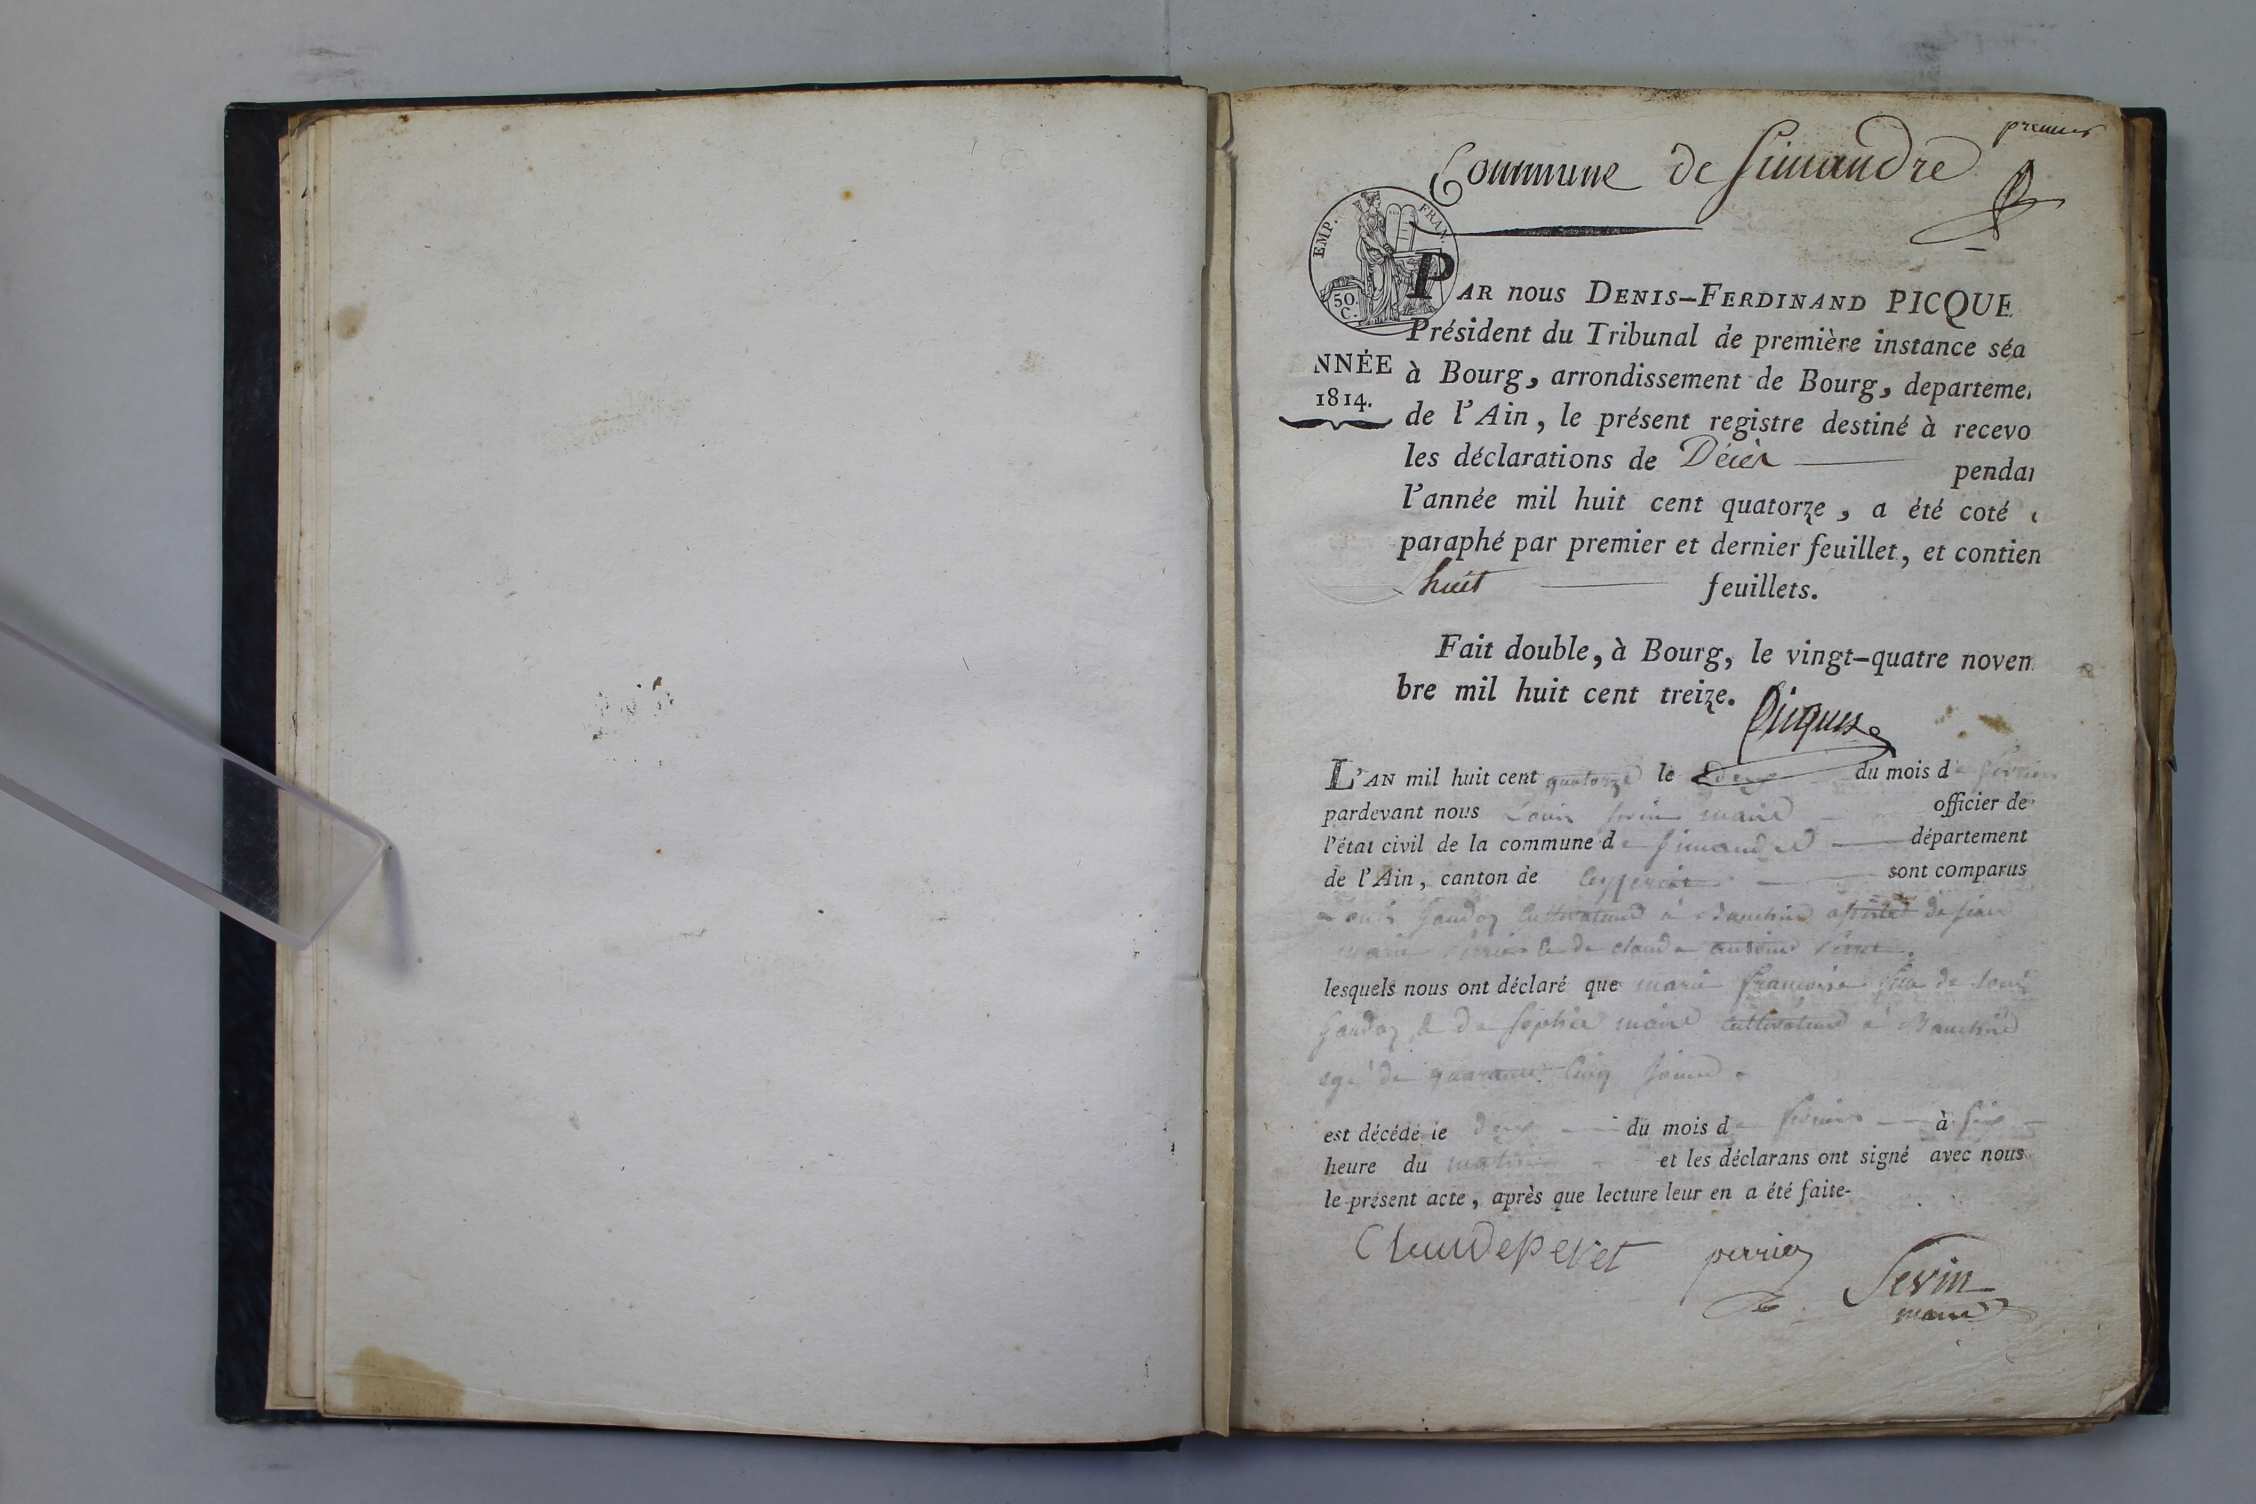 premier
Commune de Simandre
EMP. FRAN.
50. C.
PAR nous DENIS-FERDINAND PICQUE
Président du Tribunal de première instance séa
NNÉE
1814.
à Bourg, arrondissement de Bourg, departeme
de l'Ain, le présent registre destiné à recevo
les déclarations de Décès pendan
l'année mil huit cent quatorze, a été coté
paraphé par premier et dernier feuillet, et contien
huit feuillets.
Fait double, à Bourg, le vingt-quatre novem
bre mil huit cent treize.
Picquet
L'AN mil huit cent quatorze le deux du mois de fevrier
pardevant nous Louis Sevin maire officier de
l'état civil de la commune de Simandre département
de l'Ain, canton de Ceyzeriat sont comparus
Louis Gaudoz cultivateur à Banchin de jean
marie & de claude antoine
lesquels nous ont déclaré que marie francoise fille de Louis
Gaudoz & de Sophie cultivateur à Banchin
agé de quarante cinq jours
est décédé le deux du mois de fevrier à six
heure du matin et les déclarans ont signé avec nous
le présent acte, après que lecture leur en a été faite.
Claude Pevet perrier Sevin
maire